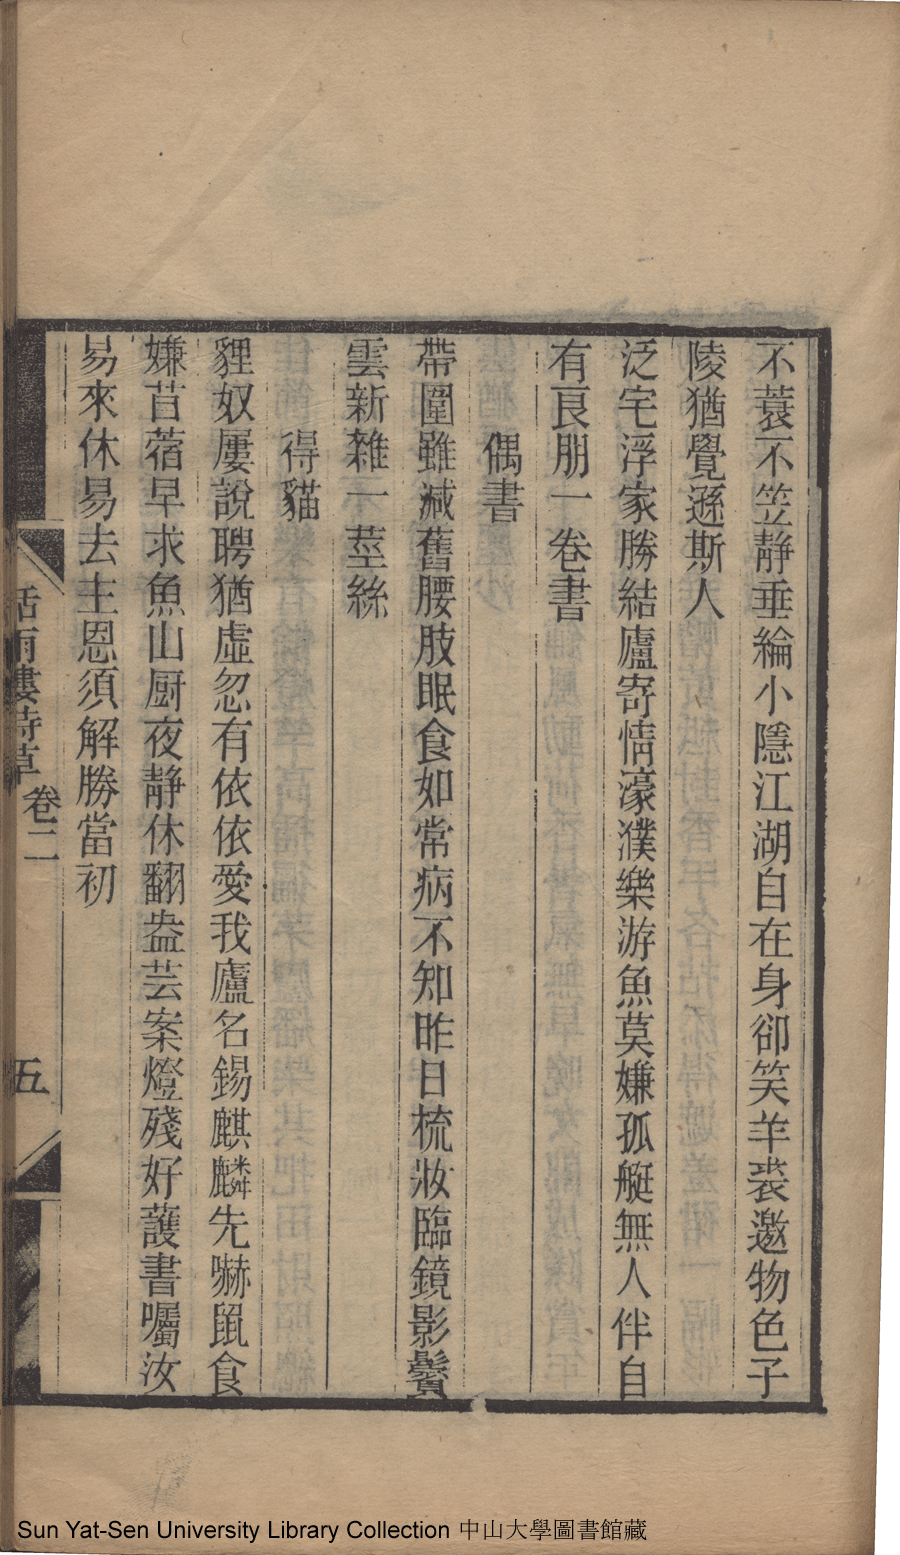 不蓑不笠靜垂綸小隱江湖自在身卻笑羊裘邀物色子
陵猶覺遜斯人
泛宅浮家勝結廬寄情濠濮樂游魚莫嫌孤艇無人伴自
有良朋一卷書
偶書
帶圍雖減舊腰肢眠食如常病不知昨日梳妝臨鏡影鬢
雲新雜一莖絲
得貓
貍奴屢說聘猶虛忽有依依愛我廬名錫麒麟先嚇鼠食
嫌苜蓿早求魚山厨夜靜休翻盎芸案燈殘好護書囑汝
易來休易去主恩須解勝當初
話雨樓詩草 卷二
五
Sun Yat-Sen University Library Collection 中山大學圖書館藏